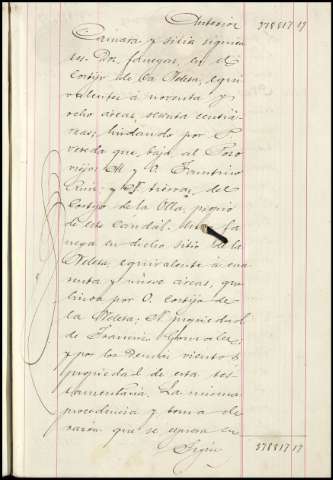 Anterior 378817 17
Camara y sitio siguien
tes. Dos fanegas, en el
Cortijo de la Aldesa, equi
valentes á noventa y
ocho áreas, sesenta centiá
reas; lindando por P.
vereda que baja al Pozo
viejo; M. y O. Faustino
Ruiz y N. tierras del
Cortijo de la Olla, propio
de este caudal. Otra fa
nega en dicho sitio de la
Aldesa, equivalente á cua
renta y nueve áreas, que
linda por O. cortijo de
la Aldesa; N. propiedad
de Francisco Gonzalez;
y por los demás vientos
propiedad de esta tes
tamentaria. La misma
procedencia y toma de
razón que se espresa en
Sigue 378817 17